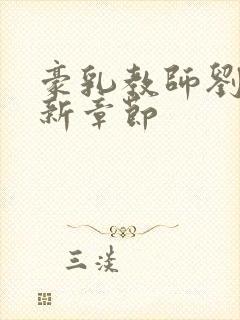 豪乳教師劉
新章節
三淡